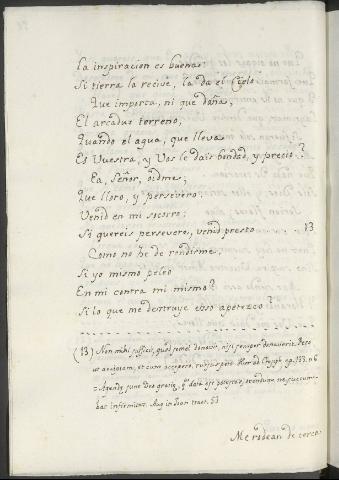 la inspiracion es buena:
Si tierra la recive, la da el Cielo
Que importa, ni que daña,
El arcaduz terreno,
Quando el agua, que lleva
Es Vuestra, y Vos le dais bondad, y precio?
Ea, Señor, oidme;
Que lloro, y persevero;
Venid en mi socorro;
Si quereis persevero, venid presto ..... 13
Como no he de rendirme,
Si yo mismo peleo
En mi contra mi mismo?
Si lo que me destruye esso apetezco?
(13) Non mihi sufficit, quod semel donavit, nisi semper donaverit. Peto
ut accipiam, et cum accepero, rursus peto. Hier. ad Ctesiph. ep. 133. n. 6
= Agendæ sunt Deo gratiæ, quod data est potestas, orandum ne succum-
bat infirmitas. Aug. in Joan. tract. 53
Me rodean de cerca